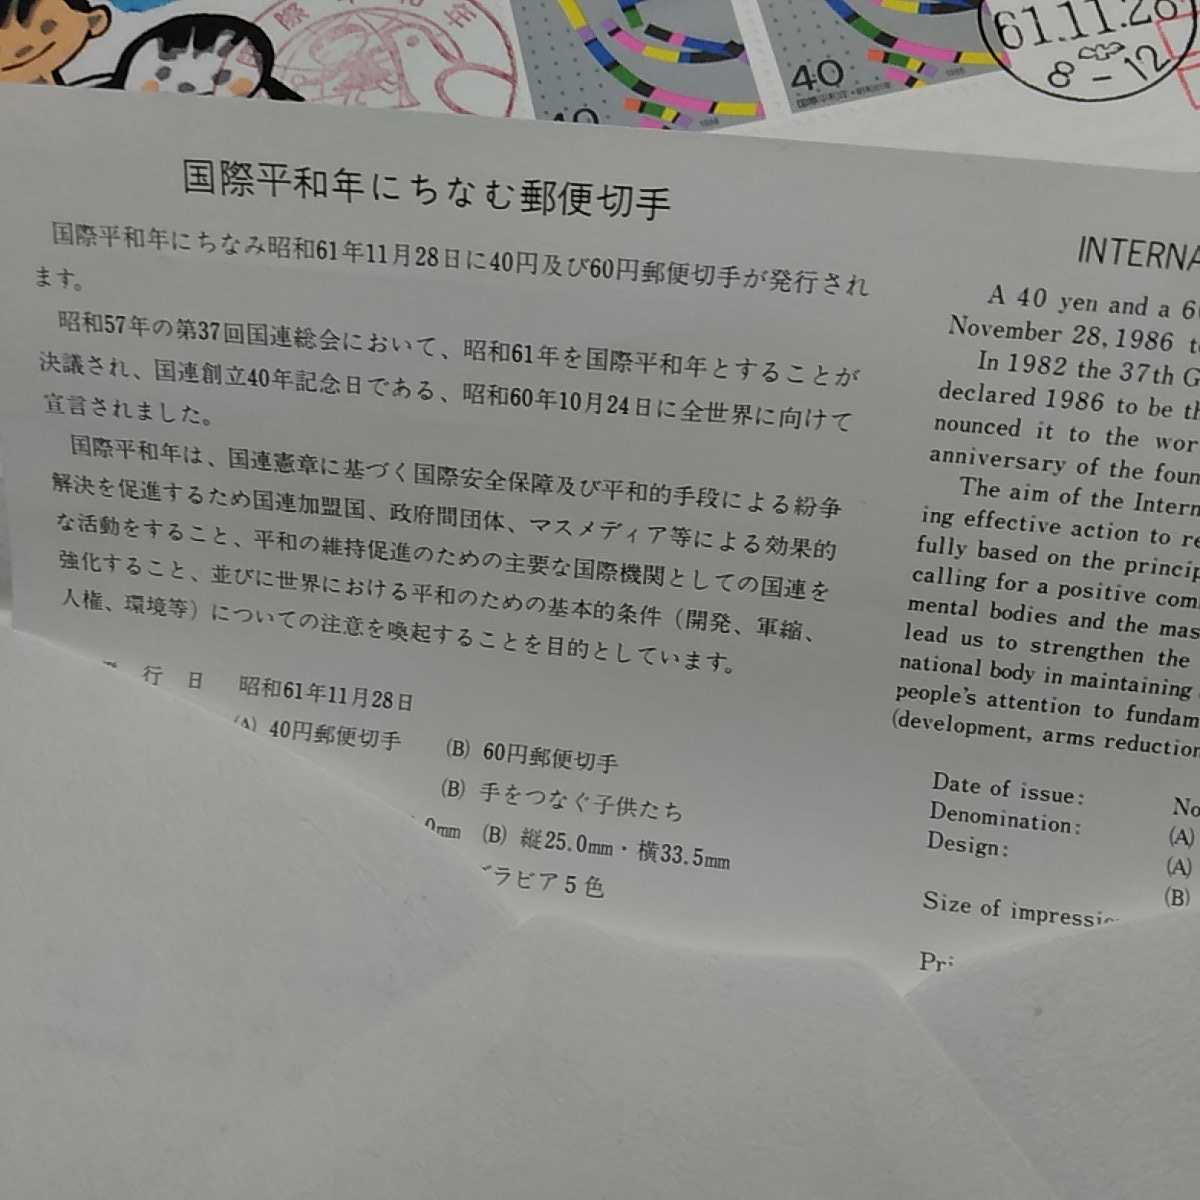 国際平和年
40
40
国際平和年・昭和61年
1986
1986
61.11.28
8-12
国際平和年にちなむ郵便切手
国際平和年にちなみ昭和61年11月28日に40円及び60円郵便切手が発行され
ます。
昭和57年の第37回国連総会において、昭和61年を国際平和年とすることが
決議され、国連創立40年記念日である、昭和60年10月24日に全世界に向けて
宣言されました。
国際平和年は、国連憲章に基づく国際安全保障及び平和的手段による紛争
解決を促進するため国連加盟国、政府間団体、マスメディア等による効果的
な活動をすること、平和の維持促進のための主要な国際機関としての国連を
強化すること、並びに世界における平和のための基本的条件（開発、軍縮、
人権、環境等）についての注意を喚起することを目的としています。
行日 昭和61年11月28日
(A) 40円郵便切手 (B) 60円郵便切手
(B) 手をつなぐ子供たち
0mm (B) 縦25.0mm・横33.5mm
グラビア5色
INTERNA
A 40 yen and a 6
November 28, 1986 t
In 1982 the 37th G
declared 1986 to be th
nounced it to the wor
anniversary of the foun
The aim of the Intern
ing effective action to re
fully based on the princip
calling for a positive com
mental bodies and the mas
lead us to strengthen the
national body in maintaining
people's attention to fundam
(development, arms reduction
Date of issue: No
Denomination: (A)
Design: (A)
(B)
Size of impressio
Pri